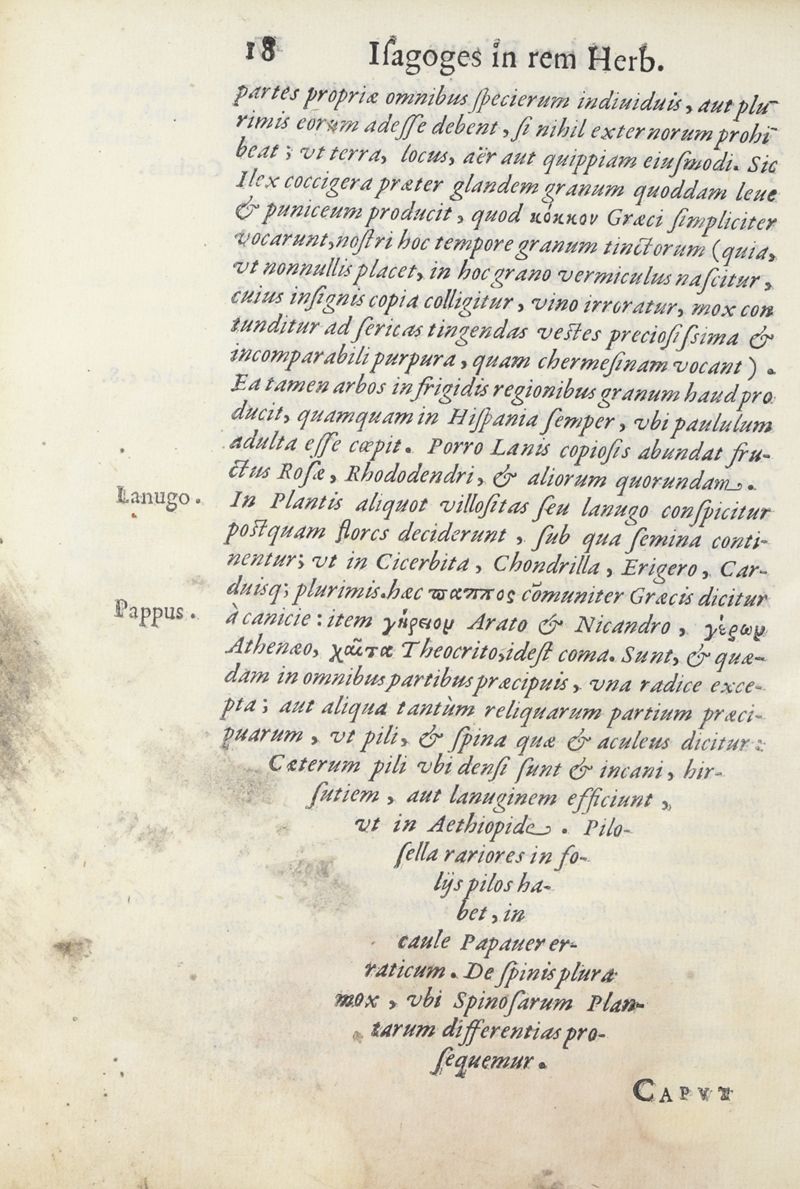 18 Iſagoges in rem Herb.
partes propriæ omnibus ſpecierum indiuiduis, aut plu¯
rimis eorum adeſſe debent, ſi nihil externorum prohi¯
beat; vt terra, locus, aër aut quippiam eiuſmodi. Sic
Ilex coccigera præter glandem granum quoddam leue
& puniceum producit, quod κόκκον Græci ſimpliciter
vocarunt, noſtri hoc tempore granum tinctorum (quia,
vt nonnullis placet, in hoc grano vermiculus naſcitur,
cuius inſignis copia colligitur, vino irroratur, mox con
tunditur ad ſericas tingendas veſtes precioſiſsima &
incomparabili purpura, quam chermeſinam vocant).
Ea tamen arbos in frigidis regionibus granum haud pro
ducit, quamquam in Hiſpania ſemper, vbi paululum
adulta eſſe cœpit. Porro Lanis copioſis abundat fru-
ctus Roſæ, Rhododendri, & aliorum quorundam.
Lanugo. In Plantis aliquot villoſitas ſeu lanugo conſpicitur
poſtquam flores deciderunt, ſub qua ſemina conti-
nentur; vt in Cicerbita, Chondrilla, Erigero, Car-
duisq; plurimis. hæc παππος cõmuniter Græcis dicitur
Pappus. à canicie: item γήρειομ Arato & Nicandro, γέρωμ
Athenæo, χαῖτα Theocrito, ideſt coma. Sunt, & quæ-
dam in omnibus partibus præcipuis, vna radice exce-
pta; aut aliqua tantùm reliquarum partium præci-
puarum, vt pili, & ſpina quæ & aculeus dicitur:
Cæterum pili vbi denſi ſunt & incani, hir-
ſutiem, aut lanuginem efficiunt,
vt in Aethiopide. Pilo-
ſella rariores in fo-
lijs pilos ha-
bet, in
caule Papauer er-
raticum. De ſpinis plura
mox, vbi Spinoſarum Plan-
tarum differentias pro-
ſequemur.
CAPVT